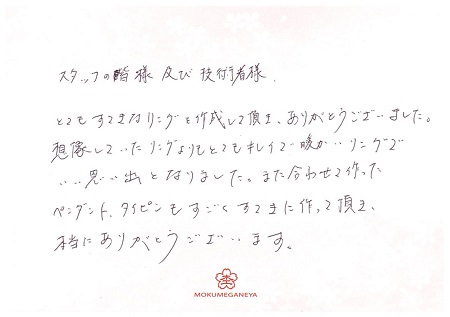 スタッフの皆様 及び 技術者様.
とてもすてきなリングを作成して頂き、ありがとうございました。
想像していたリングよりもとてもキレイで暖かいリングで
いい思い出となりました。また合わせて作った
ペンダント、タイピンもすごくすてきに作って頂き、
本当にありがとうございます。
MOKUMEGANEYA